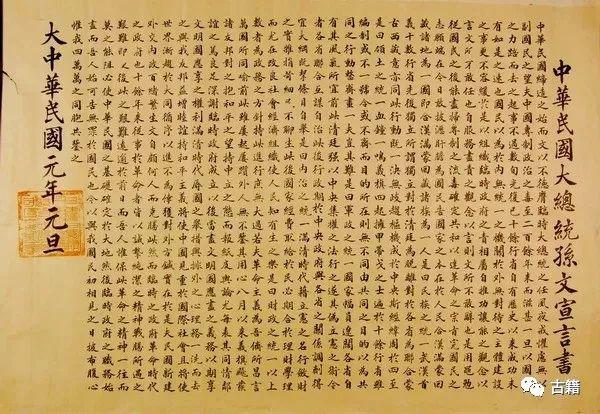 中華民國大總統孫文宣言書
中華民國締造之始而文以不德膺臨時大總統之任夙夜戒懼慮無以
副國民之望夫中國專制政治之毒至二百餘年來而滋甚一旦以國民
之力踣而去之起事不過數旬光復已十餘行省自有歷史以來成功未
有如是之速也國民以為於內無統一之機關於外無對待之主體建設
之事更不容緩於是以組織臨時政府之責相屬自推功讓能之觀念以
言文所不敢任也自服務盡責之觀念以言則文所不敢辭也是用黽勉
從國民之後能盡掃專制之流毒確定共和以達革命之宗旨完國民之
志願端在今日敢披瀝肝膽為國民告國家之本在於人民合漢滿蒙回
藏諸地為一國即合漢滿蒙回藏諸族為一人是曰民族之統一武漢首
義十數行省先後獨立所謂獨立對於清廷為脫離對於各省為聯合蒙
古西藏意亦同此行動既一決無歧趨樞機成於中央斯經緯周於四至
是曰領土之統一血鐘一鳴義旗四起擁甲帶戈之士遍於十餘行省雖
編制或不一號令或不齊而目的所在則無不同由共同之目的以為共
同之行動整齊畫一夫豈其難是曰軍政之統一國家幅員遼闊各省自
有其風氣所宜前此清廷強以中央集權之法行之遂其偽立憲之術今
者各省聯合互謀自治此後行政期於中央政府與各省之關係調劑得
宜大綱既挈條目自舉是曰內治之統一滿清時代藉立憲之名行斂財
之實雜捐苛細民不聊生此後國家經費取給於民必期合於理財學理
而尤在改良社會經濟組織使人民知有生之樂是曰財政之統一以上
數者為政務之方針持此進行庶無大過若夫革命主義為吾儕所昌言
萬國所同喻前此雖屢起屢躓外人無不鑒其用心八月以來義旗飈發
諸友邦對之抱和平之望持中立之態而報紙及輿論尤每表其同情鄰
誼之篤良足深謝臨時政府成立以後當盡文明國應盡之義務以期享
文明國應享之權利滿清時代辱國之舉措與排外之心理務一洗而去
之與我友邦益增睦誼持和平主義將使中國見重於國際社會且將使
世界漸趨於大同循序以進不為倖獲對外方針實在於是夫民國新建
外交內政百緒繁生文自顧何人而克勝此然而臨時之政府革命時代
之政府也十餘年來從事於革命者皆以誠摯純潔之精神戰勝所遇之
艱難即使後此之艱難遠逾於前日而吾人惟保此革命之精神一往而
莫之能阻必使中華民國之基礎確定於大地然後臨時政府之職務始
盡而吾人始可告無罪於國民也今以與我國民初相見之日披布腹心
惟我四萬萬之同胞共鑒之
大中華民國元年元旦
古籍